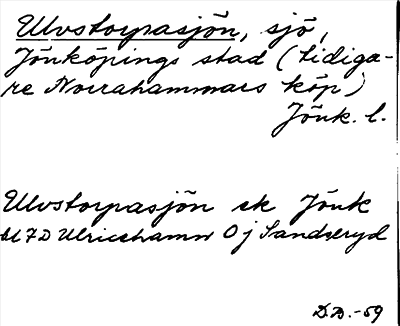 Ulvstorpasjön, sjö,
Jönköpings stad (tidiga-
re Norrahammars köp)
Jönk. l.
Ulvstorpasjön ek Jönk
bl 7D Ulricehamn Oj Sandseryd
D.B.-59